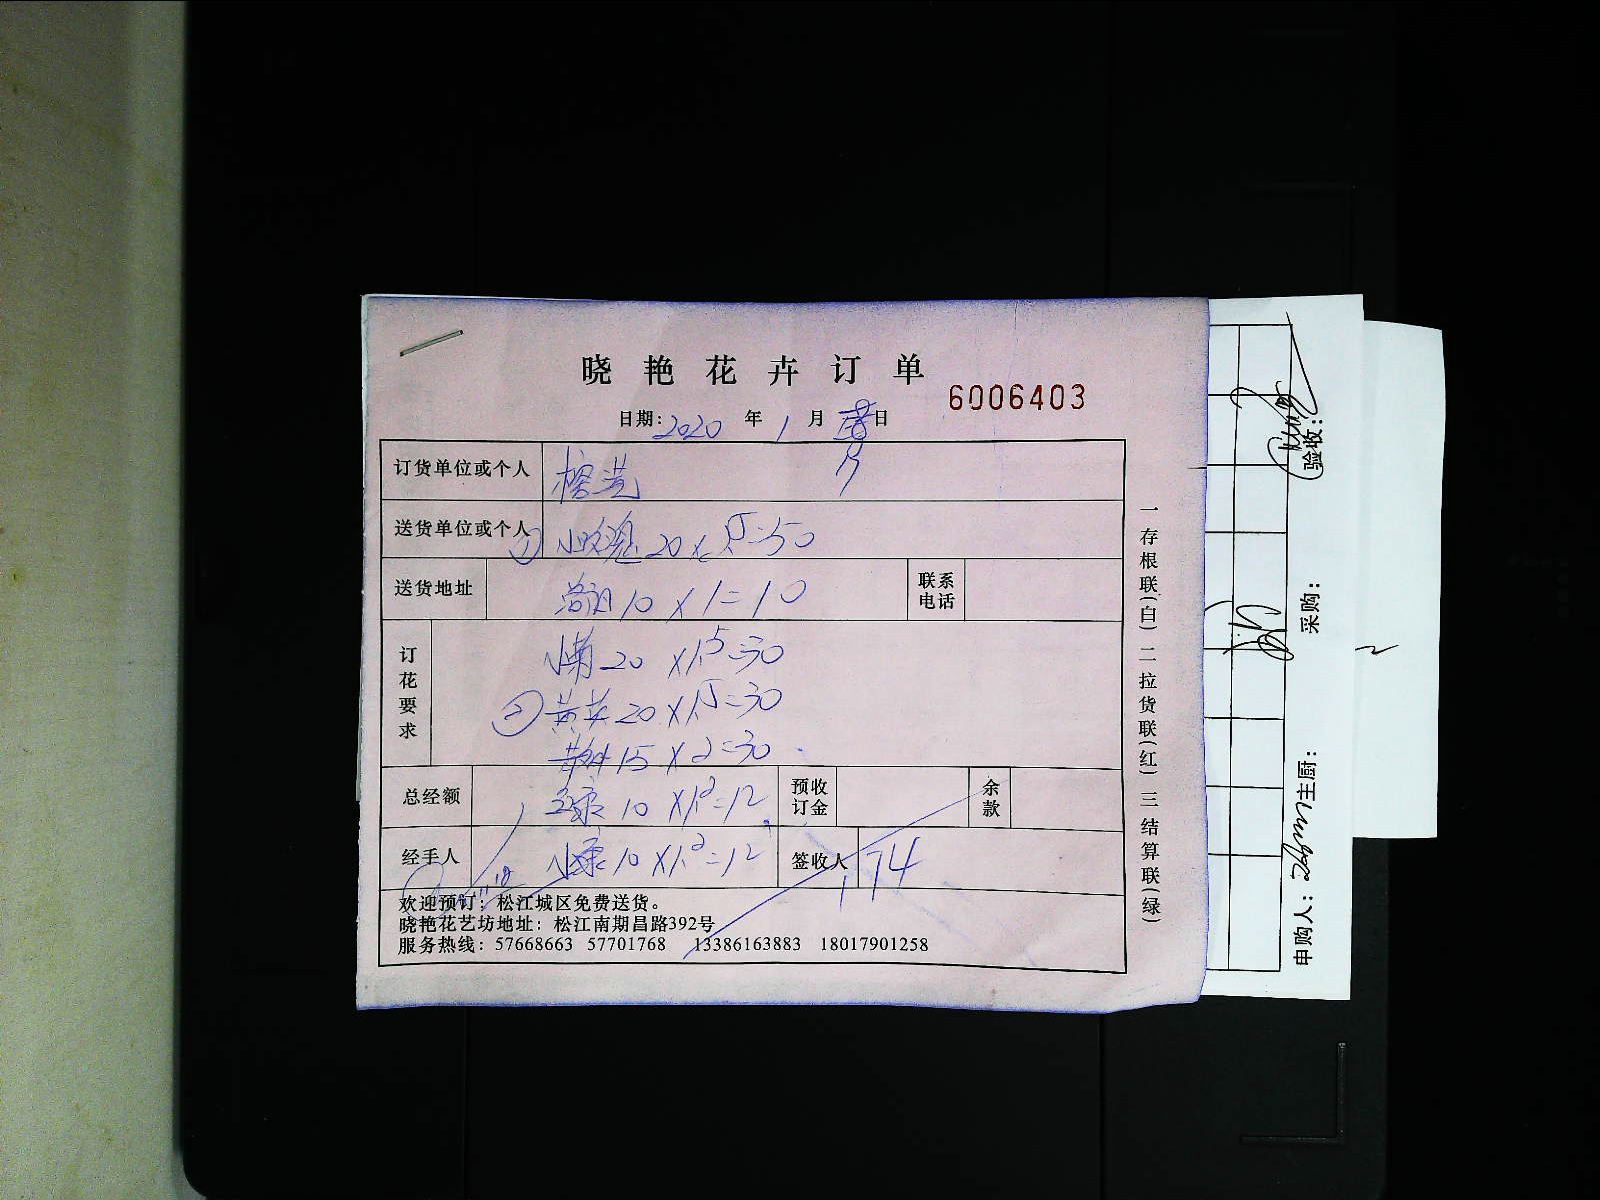 晓艳花卉订单
6006403
日期:2020年1月 日
订货单位或个人
送货单位或个人 ① 小玫瑰 20 x =50
送货地址 10 x 1=10 联系电话
订花要求
小菊 20 x 1.5=30
② 20 x 1.5=30
15 x 2=30
总经额 10 x 1.2=12 预收订金 余款
经手人 小 10 x 1.2=12 签收人 174
欢迎预订：松江城区免费送货。
晓艳花艺坊地址：松江南期昌路392号
服务热线：57668663 57701768 13386163883 18017901258
一存根联(白) 二拉货联(红) 三结算联(绿)
验收:
采购:
主厨:
申购人: